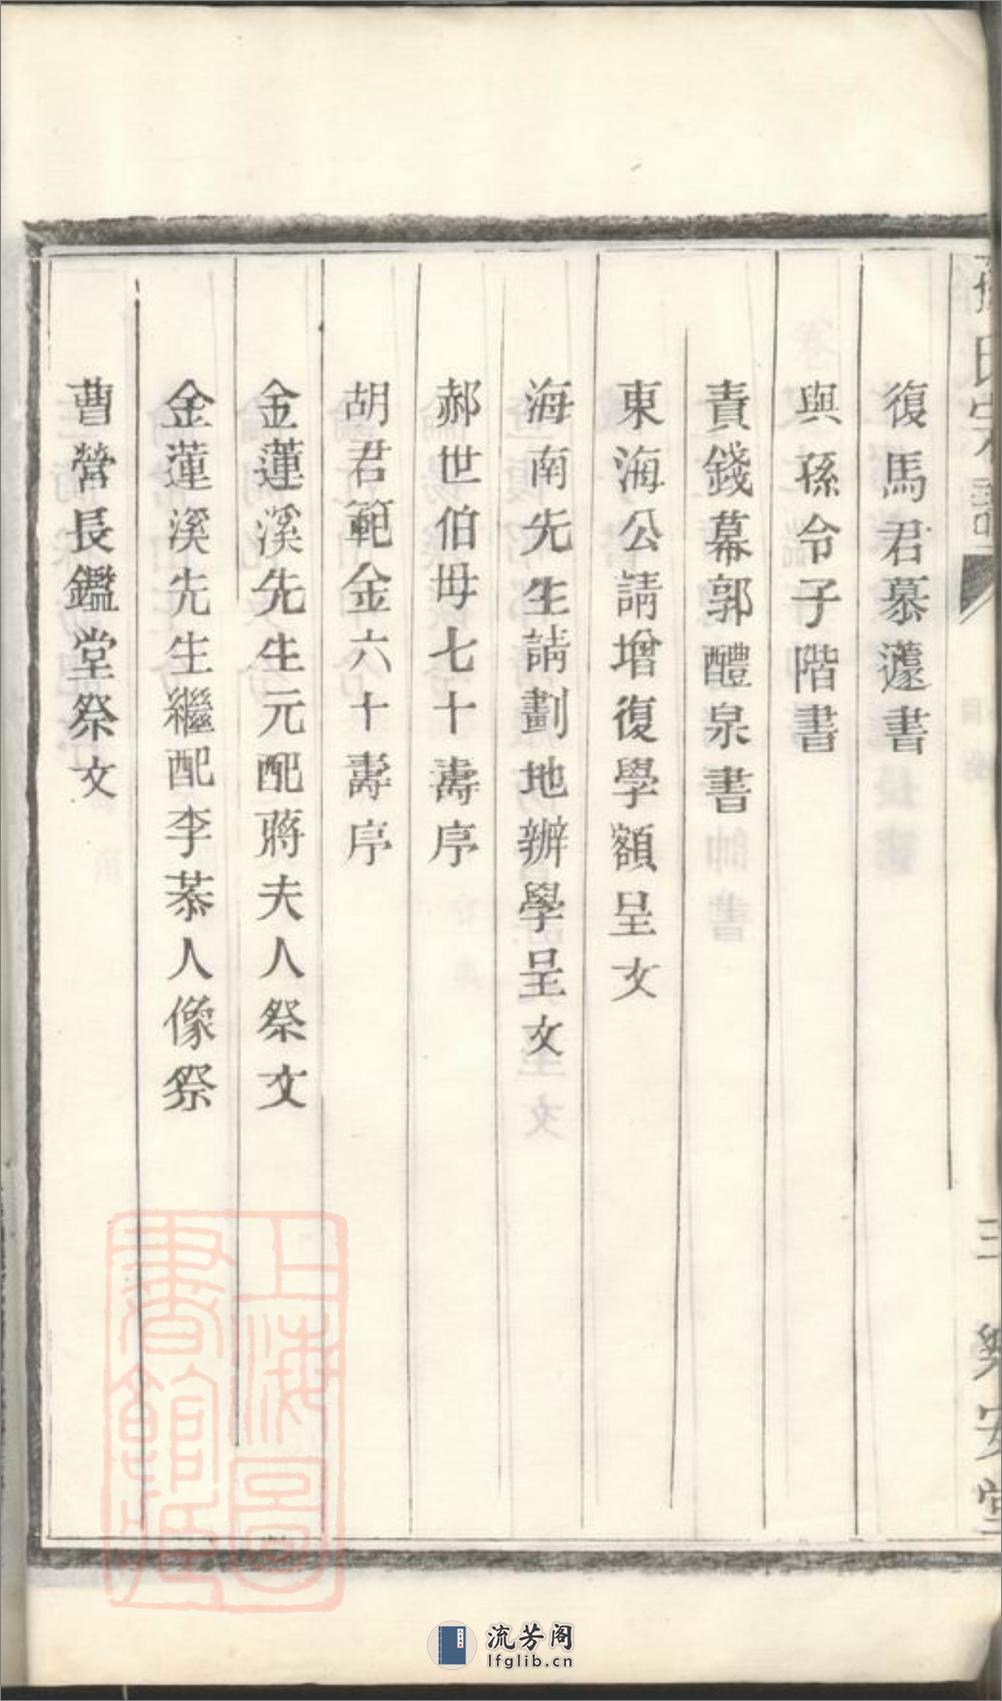 孫氏宗譜
三
樂安堂
復馬君慕蘧書
與孫令子階書
責錢幕郭醴泉書
東海公請增復學額呈文
海南先生請劃地辦學呈文
郝世伯母七十壽序
胡君範金六十壽序
金蓮溪先生元配蔣夫人祭文
金蓮溪先生繼配李恭人像祭
曹營長鑑堂祭文
上海圖
書館藏
流芳阁
lfglib.cn